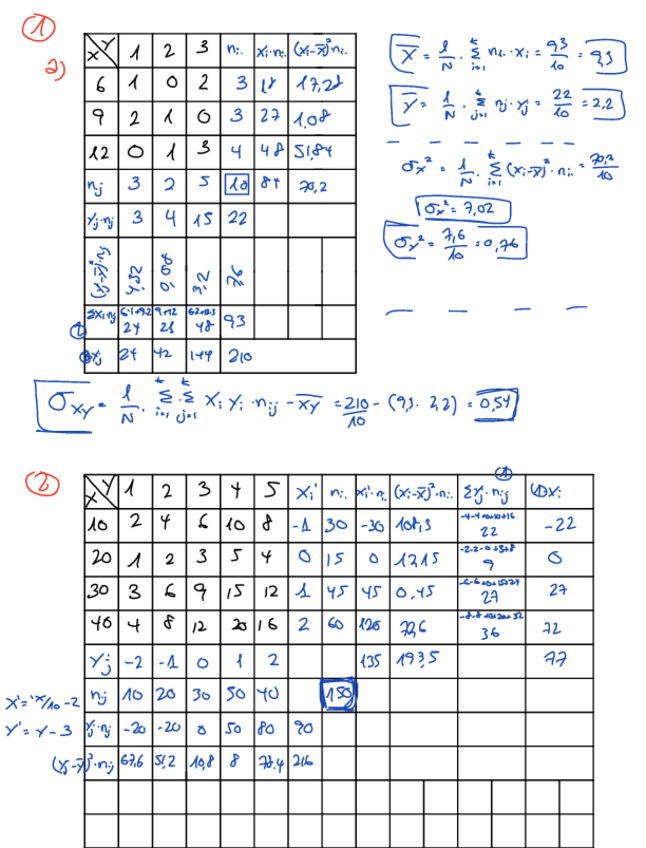 1
a)
X Y 1 2 3 ni. xi·ni. (xi-x̄)²ni.
6 1 0 2 3 18 17,28
9 2 1 0 3 27 1,08
12 0 1 3 4 48 51,84
nj 3 2 5 10 84 70,2
yj·nj 3 4 15 22
(yj-ȳ)²·nj 4,32 0,08 3,2 7,6
①Σxi·nij 24 21 48 93
①yj 24 42 144 210
X̄ = 1/N · Σ(i=1, k) ni.·xi = 93/10 = 9,3
Ȳ = 1/N · Σ(j=1, k) nj·yj = 22/10 = 2,2
σx² = 1/N · Σ(i=1, k) (xi-x̄)²·ni. = 70,2/10
σx² = 7,02
σy² = 7,6/10 = 0,76
σxy = 1/N · Σ(i=1, k) · Σ(j=1, k) xi yi·nij - xy = 210/10 - (9,3 · 2,2) = 0,54
2
X Y 1 2 3 4 5 xi' ni. xi'·ni. (xi-x̄)²·ni. Σyj'·nij ① ①xi
10 2 4 6 10 8 -1 30 -30 108,3 -4-4+0+10+16 22 -22
20 1 2 3 5 4 0 15 0 12,15 -2-2-0+5+8 9 0
30 3 6 9 15 12 1 45 45 0,45 -6-6+0+15+24 27 27
40 4 8 12 20 16 2 60 120 72,6 -8-8+0+20+32 36 72
Yj' -2 -1 0 1 2 135 193,5 77
X' = x/10 -2 nj 10 20 30 50 40 150
Y' = Y-3 yj·nj -20 -20 0 50 80 90
(yj-ȳ)²·nj 67,6 51,2 10,8 8 78,4 216